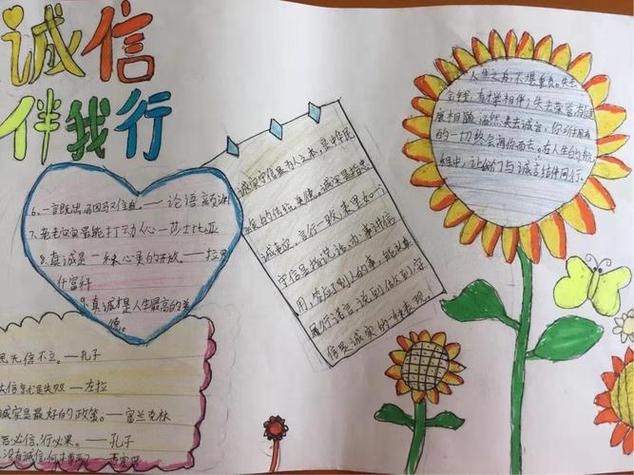 诚信
伴我行
6.一言既出,驷马难追。——论语
7.老老实实最能打动人心—莎士比亚
8.真诚是一种心灵的开放——拉罗
什富科
9.真诚才是人生最高的美
德。
民无信不立。——孔子
失信就是失败——左拉
诚实是最好的政策。——富兰克林
言必信,行必果。——孔子
没有诚信,何来
诚实守信是为人之本,是中华民
族的传统美德。诚实是指忠
诚老实,言行一致,表里如一;
守信是指说话、办事讲信
用,答应别人的事,能认真
履行诺言,说到做到,守
信是诚实的一种表现。
人生之舟,不堪重负。失去
金钱,有才学相伴;失去荣誉有健
康相随
的一切终会离你而去。在人生的航
程中,让我们与诚信结伴同行。